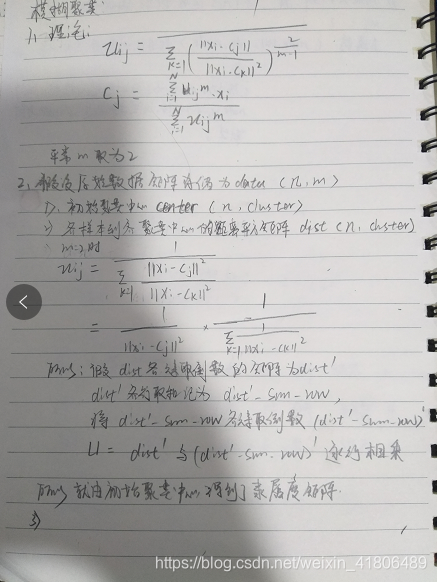 模糊聚类
1、理论:
1
uij = ———
Σ k=1 ( ||xi - cj|| / ||xi - ck||² ) ^ 2/m-1
cj = Σ N i=1 uij^m · xi / Σ N i=1 uij^m
平常 m 取为 2
2、假设原始数据矩阵 为 data (n, m)
1>、初始聚类中心 center (n, cluster)
2> 各样本到各聚类中心的距离平方矩阵 dist (n, cluster)
m=2时
uij = 1 / Σ k=1 ||xi - cj||² / ||xi - ck||²
= 1 / ||xi - cj||² * 1 / Σ k=1 1 / ||xi - ck||²
所以: 假设 dist 各 取倒数的矩阵为 dist'
dist' 各行取和 记为 dist'-sum-row,
将 dist'-sum-row 各 取倒数 (dist'-sum-row)'
U = dist' 与 (dist'-sum-row)' 逐行相乘
所以 就由初始聚类中心 得到了隶属度矩阵.
3>
https://blog.csdn.net/weixin_41806489